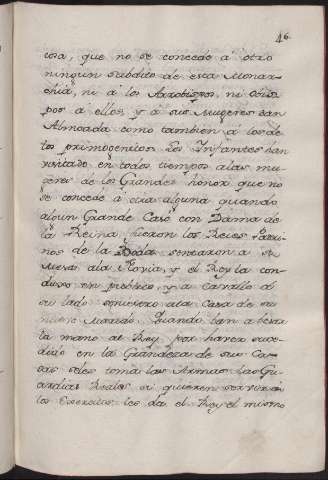 46
cosa, que no se concede a otro
ningun subdito de esta Monar-
chia, ni a los Arzobispos, ni Obis
pos á ellos, y a sus Mugeres dan
Almoada como tambien a los de
los primogenitos Los Infantes han
visitado en todos tiempos alas mu-
geres de los Grandes honor que no
se concede a otra alguna quando
algun Grande Casó con Dama de
la Reina, fueron los Reies Padri
nos de la Boda sentaron a su
Mesa ala Novia, y el Rey la con-
dujo en publico, y a cavallo á
su lado siniestro ala Casa de su
nuevo Marido. Quando ban a besar
la mano al Rey por haver suce-
dido en la Grandeza de sus Ca-
sas seles toma las Armas las Gu-
ardias Reales si quieren servir en
los Exercitos les da el Rey el mismo